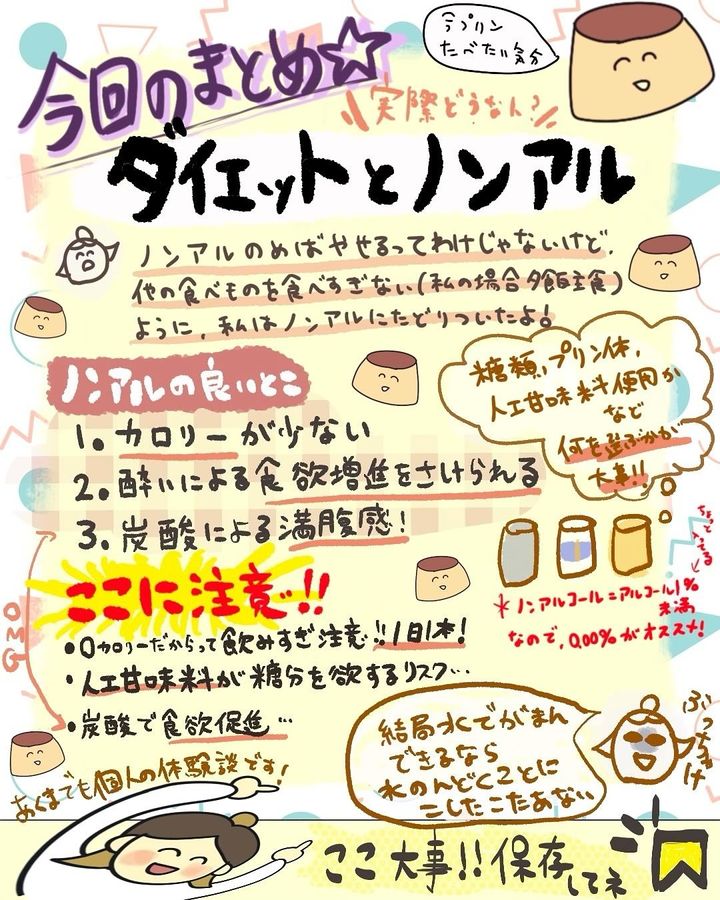 今プリン
たべたい気分
今回のまとめ☆
実際どうなん?
ダイエットとノンアル
ノンアルのめばやせるってわけじゃないけど、
他の食べものを食べすぎない(私の場合夕飯主食)
ように、私はノンアルにたどりついたよ!
糖類、プリン体、
人工甘味料使用か
など
何を選ぶかが
大事!!
ノンアルの良いとこ
1. カロリーが少ない
2. 酔いによる食欲増進をさけられる
3. 炭酸による満腹感!
ちょっと入ってる
*ノンアルコール=アルコール1%
未満
なので、0.00%がオススメ!
ここに注意!!
・0カロリーだからって飲みすぎ注意!!1日1本!
・人工甘味料が糖分を欲するリスク…
・炭酸で食欲促進…
あくまでも個人の体験談です!
結局水でがまん
できるなら
水のんどくことに
こしたこたあない
ぶっちゃけ
ここ大事!!保存
してネ